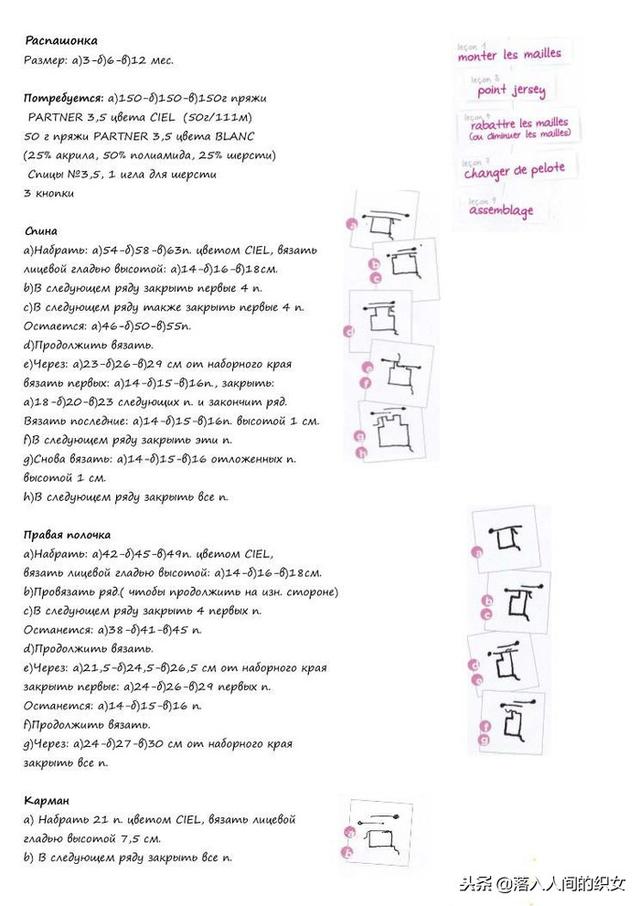 Распашонка
Размер: а)3-б)6-в)12 мес.
Потребуется: а)150-б)150-в)150г пряжи
PARTNER 3,5 цвета CIEL (50г/111м)
50 г пряжи PARTNER 3,5 цвета BLANC
(25% акрила, 50% полиамида, 25% шерсти)
Спицы №3,5, 1 игла для шерсти
3 кнопки
leçon 1
monter les mailles
point jersey
rabattre les mailles
(ou diminuer les mailles)
changer de pelote
assemblage
Спина
a)Набрать: а)54-б)58-в)63п. цветом CIEL, вязать
лицевой гладью высотой: а)14-б)16-в)18см.
b)В следующем ряду закрыть первые 4 п.
c)В следующем ряду также закрыть первые 4 п.
Остается: а)46-б)50-в)55п.
d)Продолжить вязать.
e)Через: а)23-б)26-в)29 см от наборного края
вязать первых: а)14-б)15-в)16п., закрыть:
а)18-б)20-в)23 следующих п. и закончит ряд.
Вязать последние: а)14-б)15-в)16п. высотой 1 см.
f)В следующем ряду закрыть эти п.
g)Снова вязать: а)14-б)15-в)16 отложенных п.
высотой 1 см.
h)В следующем ряду закрыть все п.
a
b
c
d
e
f
g
h
Правая полочка
a)Набрать: а)42-б)45-в)49п. цветом CIEL,
вязать лицевой гладью высотой: а)14-б)16-в)18см.
b)Провязать ряд.( чтобы продолжить на изн. стороне)
c)В следующем ряду закрыть 4 первых п.
Останется: а)38-б)41-в)45 п.
d)Продолжить вязать.
e)Через: а)21,5-б)24,5-в)26,5 см от наборного края
закрыть первые: а)24-б)26-в)29 первых п.
Останется: а)14-б)15-в)16 п.
f)Продолжить вязать.
g)Через: а)24-б)27-в)30 см от наборного края
закрыть все п.
a
b
c
d
e
f
g
Карман
a) Набрать 21 п. цветом CIEL, вязать лицевой
гладью высотой 7,5 см.
b) В следующем ряду закрыть все п.
a
b
头条 @落入人间的织女